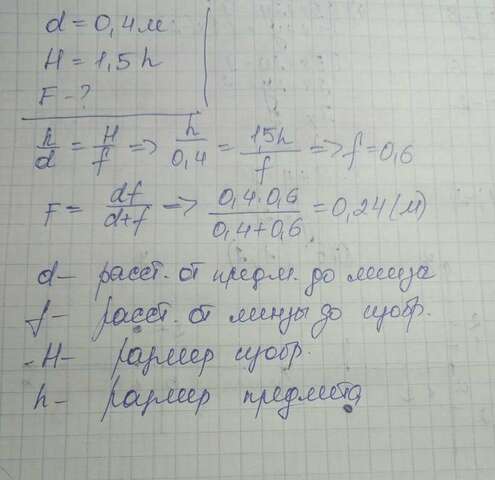 d = 0,4 м
H = 1,5 h
F - ?
h/d = H/f => h/0,4 = 1,5h/f => f = 0,6
F = df/d+f => 0,4·0,6/0,4+0,6 = 0,24 (м)
d - расст. от предм. до линза
f - расст. от линзы до изобр.
-H- размер изобр.
h - размер предмета